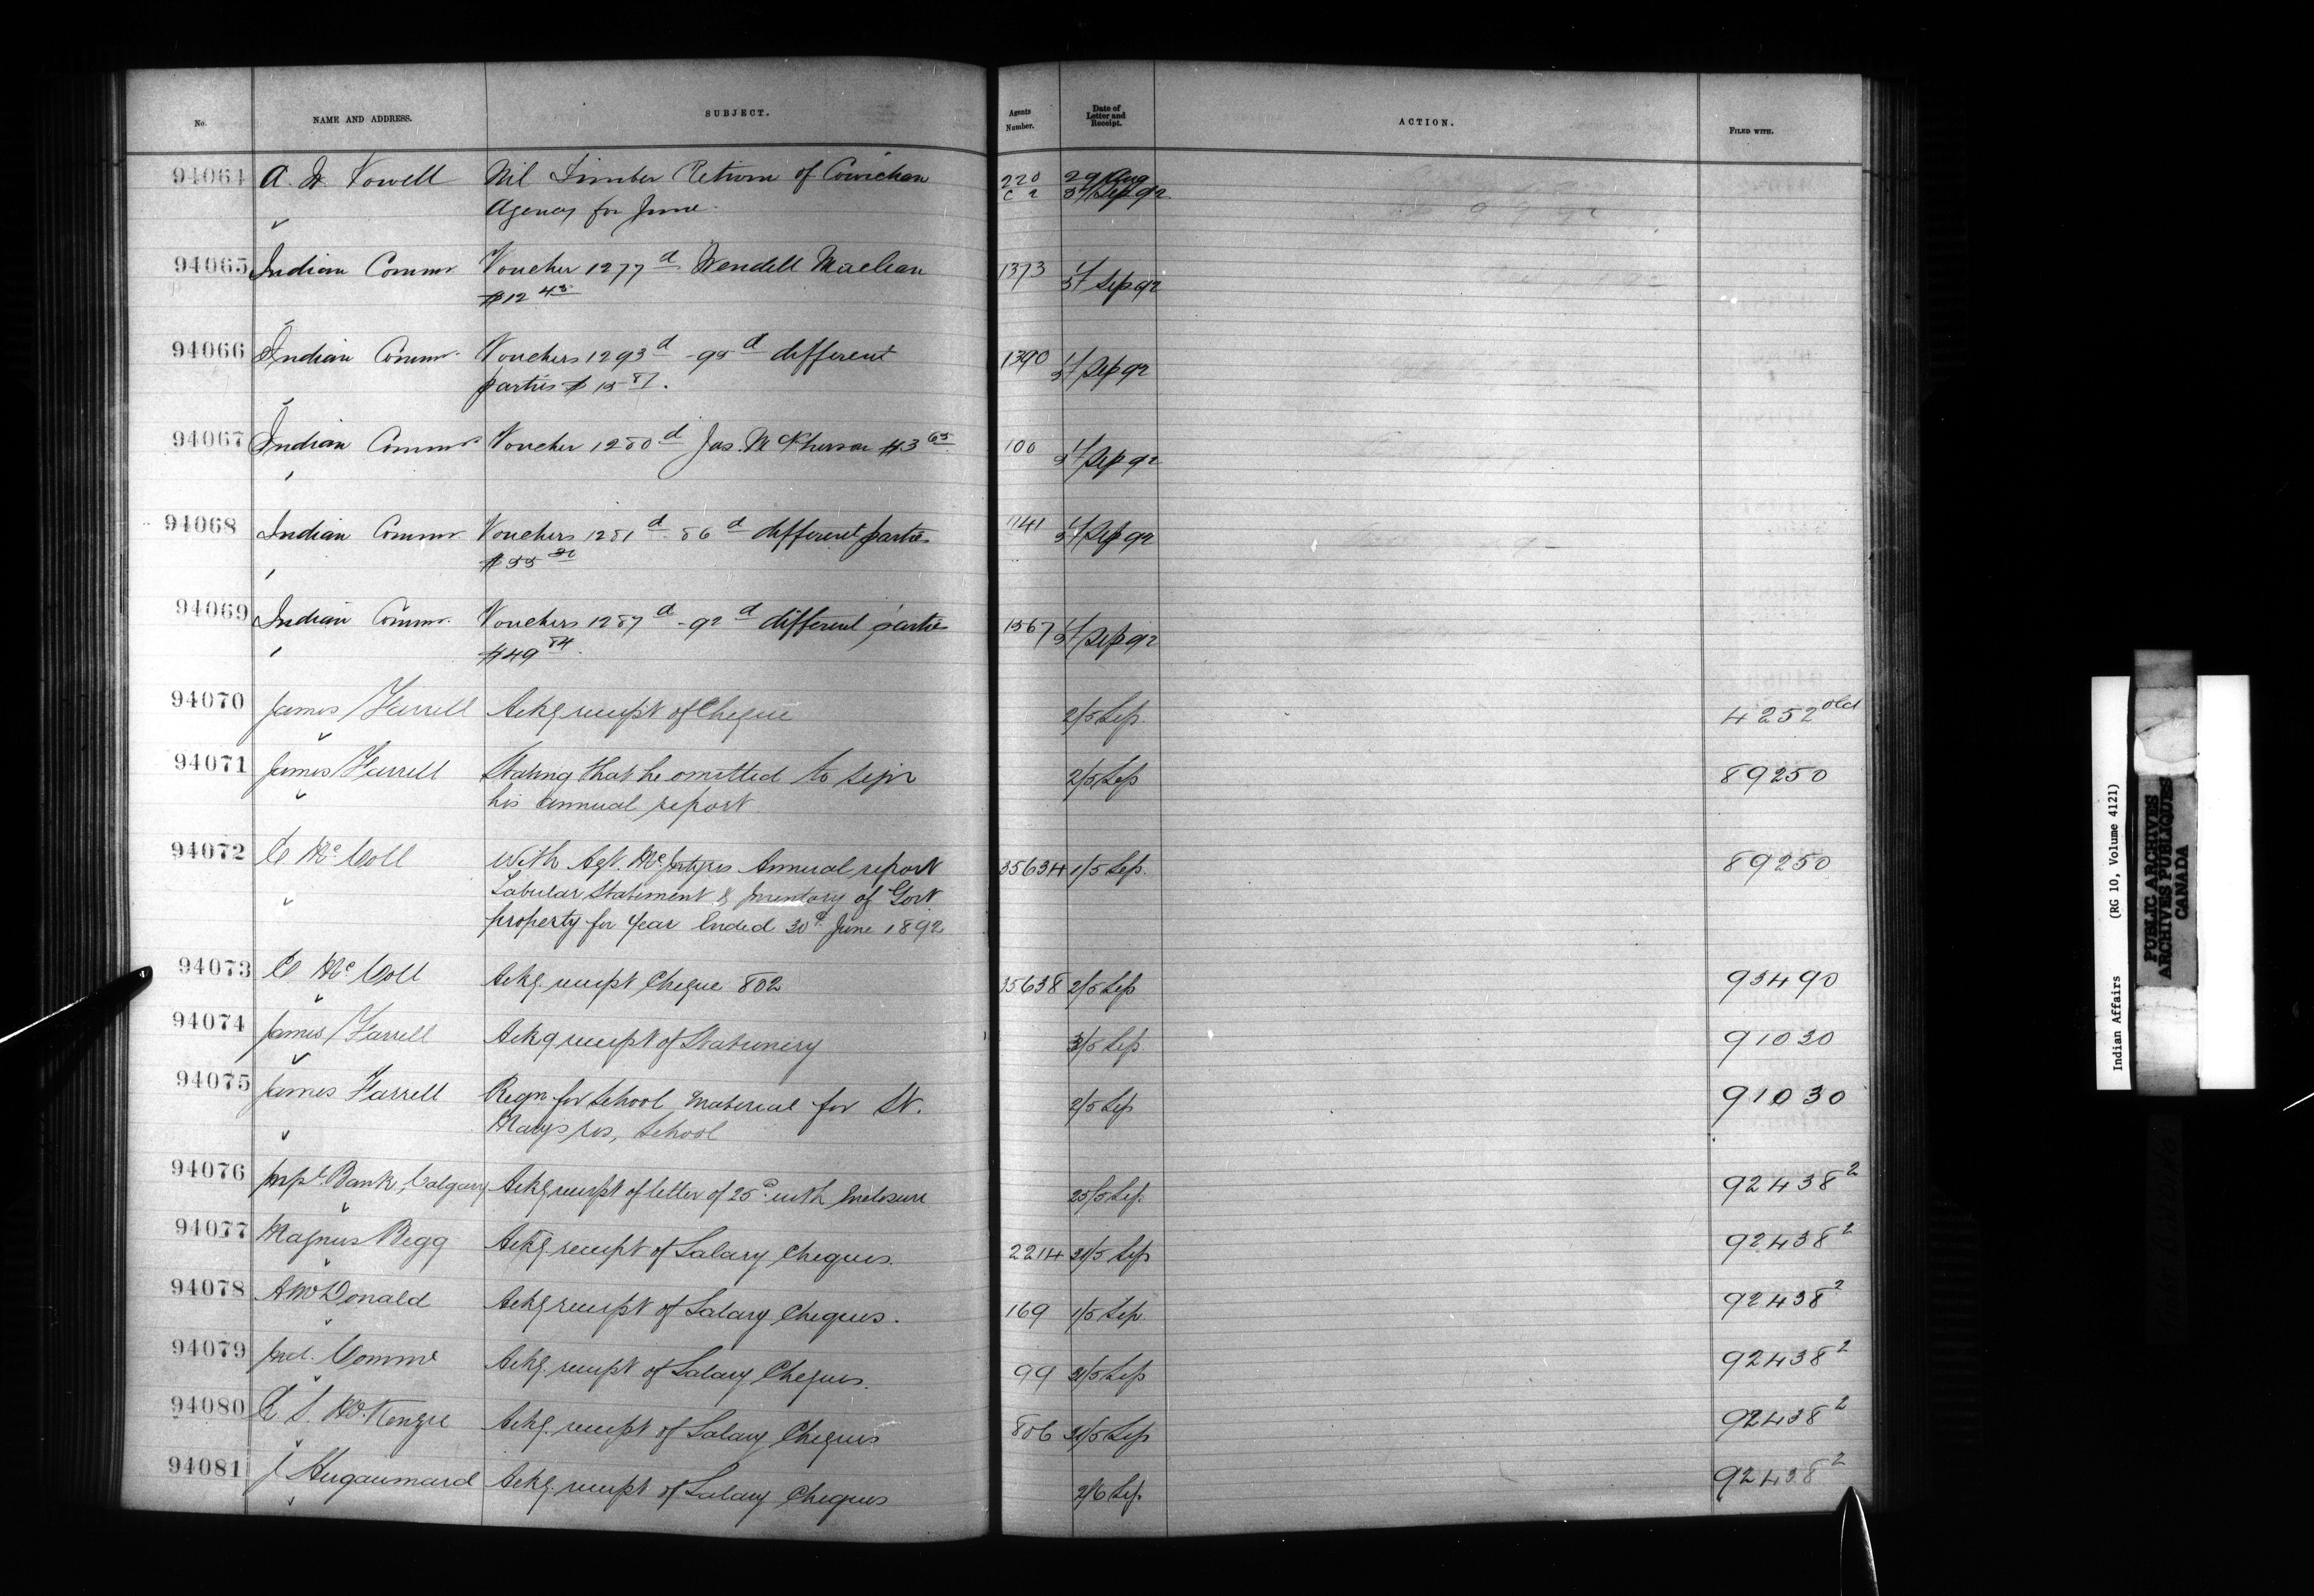 No. NAME AND ADDRESS. SUBJECT. Agents Number. Date of Letter and Receipt. ACTION. FILED WITH.
94064 A. W. Vowell Nil Timber Return of Cowichan 220 29 Aug
Agency for June. 5 Sep 92
94065 Indian Commr Voucher 1277 d Wendell Maclean 1373 1/5 Sep 92
$12 45
94066 Indian Commr. Vouchers 1293 d - 95 d different 1390 1/5 Sep 92
parties $ 15 87.
94067 Indian Commr Voucher 1280 d Jas. McPherson $3 65 100 1/5 Sep 92
94068 Indian Commr Vouchers 1281 d - 86 d different parties 1141 1/5 Sep 92
$55
94069 Indian Commr. Vouchers 1287 d - 92 d different parties 1567 1/5 Sep 92
$49 84.
94070 James Farrell Ackg receipt of Cheque 2/5 Sep. 4252 old
94071 James Farrell Stating that he omitted to sign 2/5 Sep 89250
his annual report
94072 E Mc Coll With Agt. McIntyres Annual report 35634 1/5 Sep. 89250
Tabular Statement & Inventory of Govt
property for year Ended 30th June 1892
94073 E Mc Coll Ackg. receipt Cheque 802 35638 2/5 Sep 93490
94074 James Farrell Ackg receipt of Stationery 3/5 Sep 91030
94075 James Farrell Reqn for School material for St. 2/5 Sep 91030
Marys res, School
94076 Impl. Bank, Calgary Ackg receipt of letter of 25th with Enclosure 25/5 Sep. 92438 2
94077 Magnus Begg Ackg. receipt of Salary Cheques. 2214 31/5 Sep 92438 2
94078 A McDonald Ackg receipt of Salary Cheques. 169 1/5 Sep. 92438 2
94079 Ind. Commr Ackg. receipt of Salary Cheques. 99 31/5 Sep 92438 2
94080 R S. McKenzie Ackg. receipt of Salary Cheques 806 31/5 Sep 92438 2
94081 J Hugonnard Ackg. receipt of Salary Cheques 2/6 Sep. 92438 2
Indian Affairs (RG 10, Volume 4121)
PUBLIC ARCHIVES
ARCHIVES PUBLIQUES
CANADA